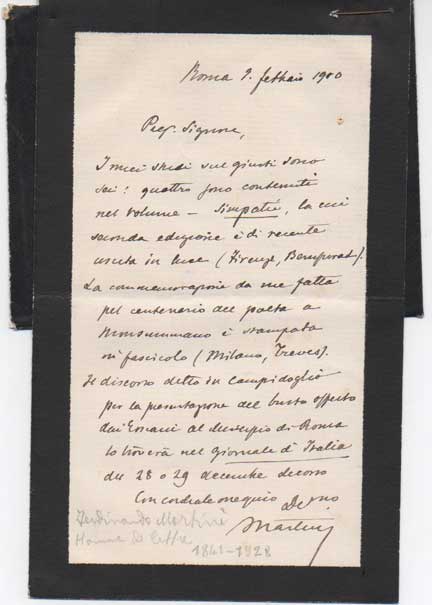 Roma 9. febbraio 1900
Preg. Signore,
I miei studi sul Giusti sono
sei: quattro sono contenuti
nel volume – Simpatie, la cui
seconda edizione è di recente
uscita in luce (Firenze, Bemporad).
La commemorazione da me fatta
pel centenario del poeta a
Monsummano è stampata
in fascicolo (Milano, Treves).
Il discorso detto in Campidoglio
per la presentazione del busto offerto
dai Toscani al Municipio di Roma
lo troverà nel Giornale d'Italia
del 28 o 29 decembre decorso
Con cordiale ossequio Dev.mo
Martini
Ferdinando Martini
Homme de lettre
1841-1928